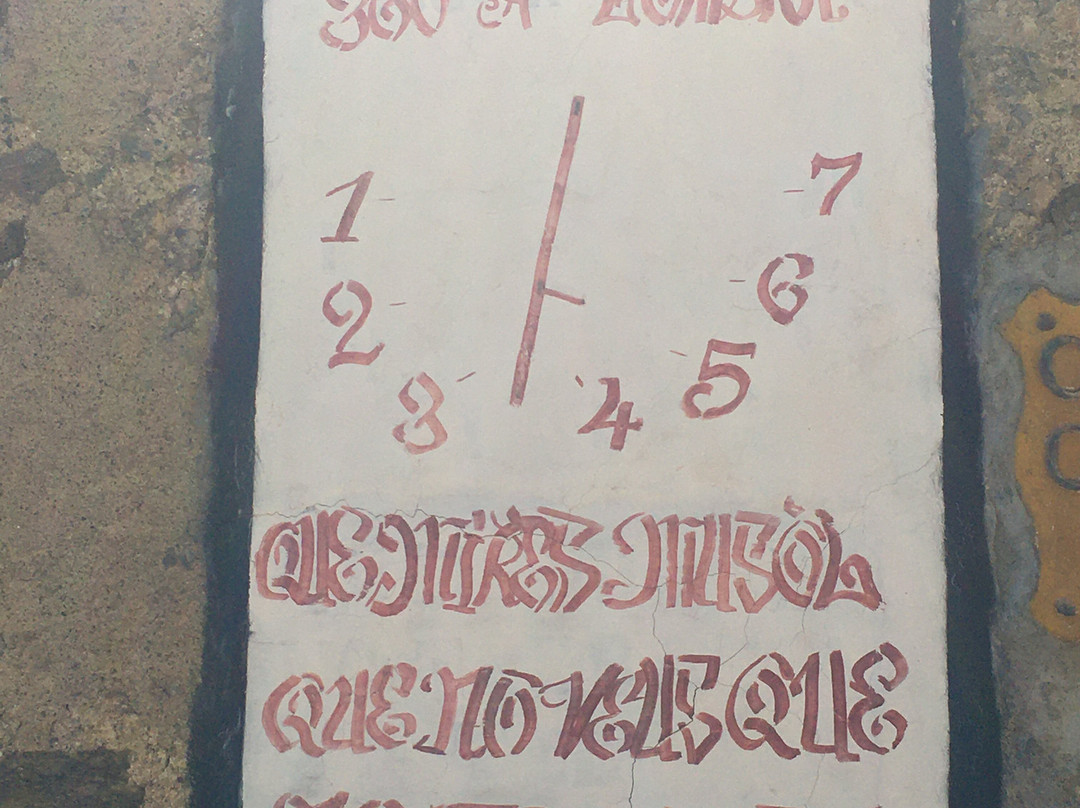 1
2
3
4
5
6
7
QUE MIRES MUSÒL
QUE NO VEUS QUE